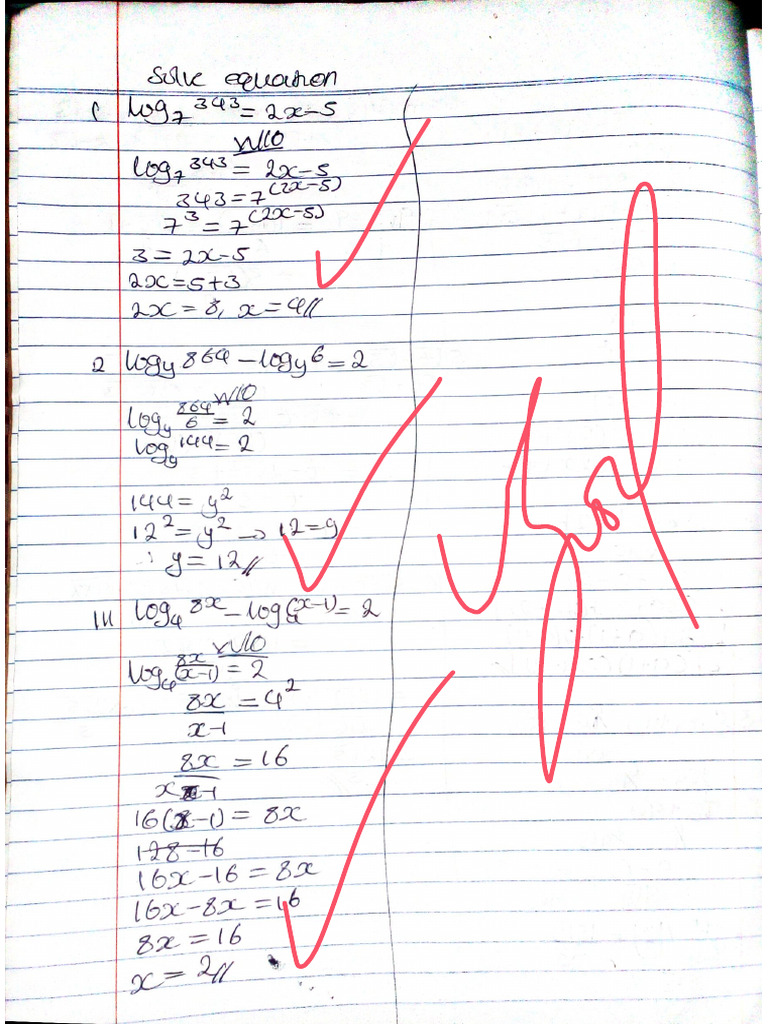 Solve equation
i log₇ 343 = 2x-5
W/O
log₇ 343 = 2x-5
343 = 7^(2x-5)
7³ = 7^(2x-5)
3 = 2x-5
2x = 5+3
2x = 8, x = 4//
2 logy 864 - logy 6 = 2
W/O
logy 864/6 = 2
logy 144 = 2
144 = y²
12² = y² → 12 = y
y = 12//
III log₄ 8x - log₄(x-1) = 2
W/O
log₄ 8x/(x-1) = 2
8x/x-1 = 4²
8x/x-1 = 16
16(x-1) = 8x
128-16
16x-16 = 8x
16x-8x = 16
8x = 16
x = 2//